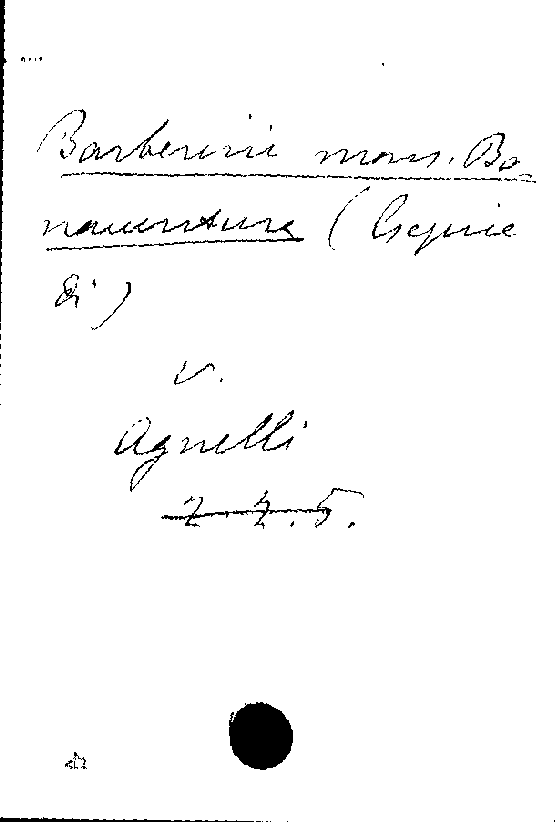 Barberini mons. Bo-
naventura (Esequie
di)
v.
Agnelli
2. 2. 5.